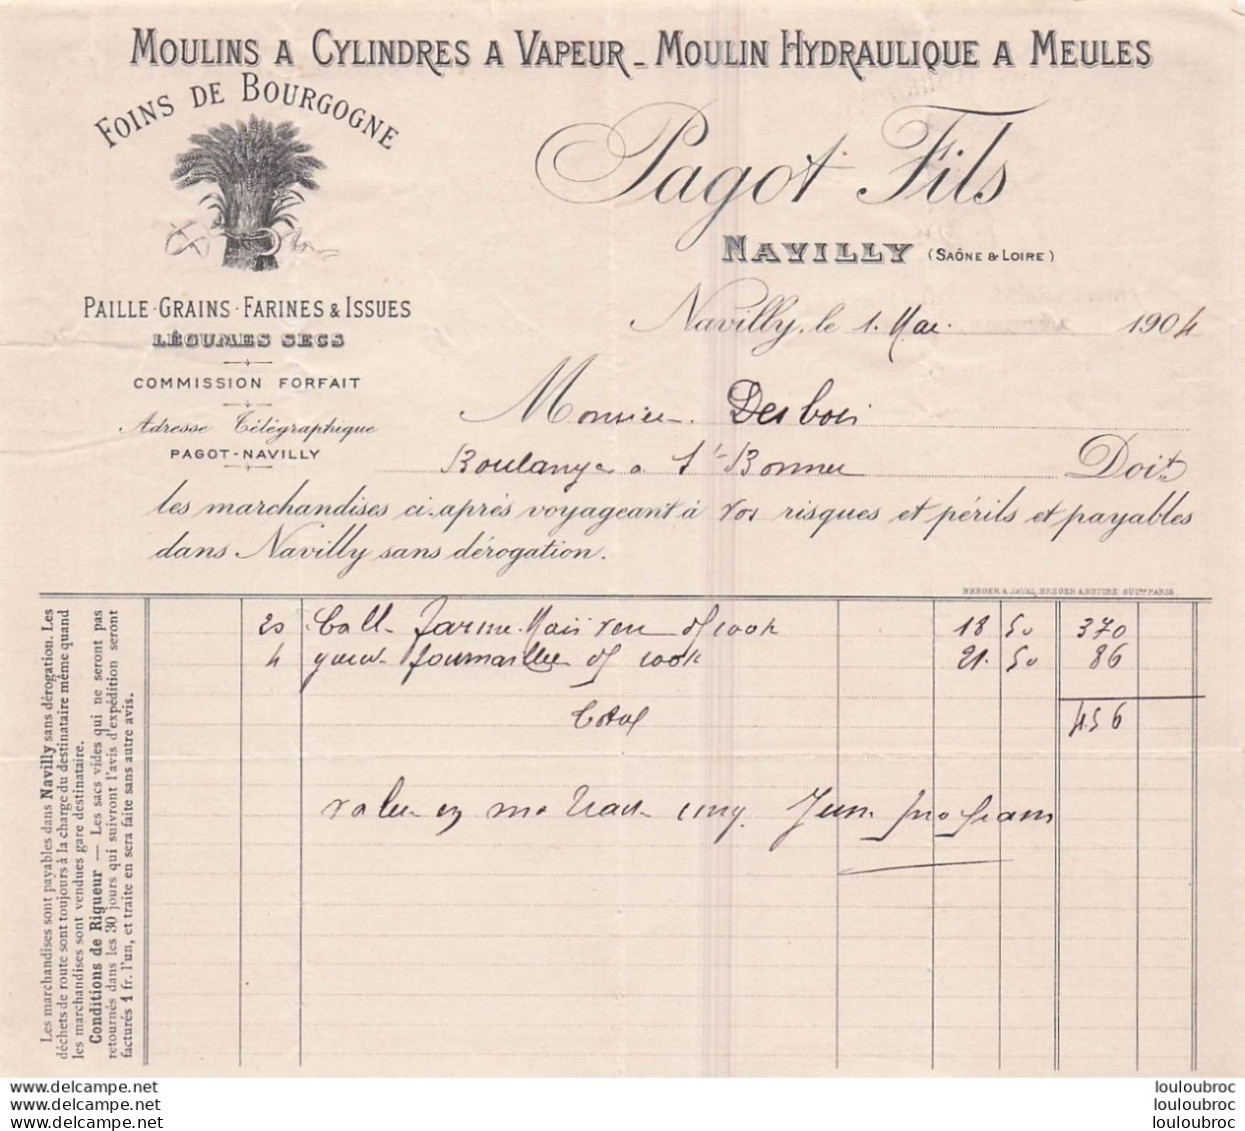 MOULINS A CYLINDRES A VAPEUR - MOULIN HYDRAULIQUE A MEULES
FOINS DE BOURGOGNE
Pagot Fils
NAVILLY (SAÔNE & LOIRE)
PAILLE - GRAINS - FARINES & ISSUES
LÉGUMES SECS
COMMISSION FORFAIT
Adresse Télégraphique
PAGOT - NAVILLY
Navilly, le 1. Mai 1904
Monsieur Desbois
Boulanger a St Bonnet Doit
les marchandises ci-après voyageant à vos risques et périls et payables
dans Navilly sans dérogation.
BERGER & JAVAL, BERGER & NETTRE SUCrs PARIS
20 Ball. farine 18 50 370
4 21. 50 86
Total 456
valeur en ma traite cinq Juin prochain
Les marchandises sont payables dans Navilly sans dérogation. Les
déchets de route sont toujours à la charge du destinataire même quand
les marchandises sont vendues gare destinataire.
Conditions de Rigueur — Les sacs vides qui ne seront pas
retournés dans les 30 jours qui suivront l'avis d'expédition seront
facturés 1 fr. l'un, et traite en sera faite sans autre avis.
www.delcampe.net
www.delcampe.net
www.delcampe.net
louloubroc
louloubroc
louloubroc